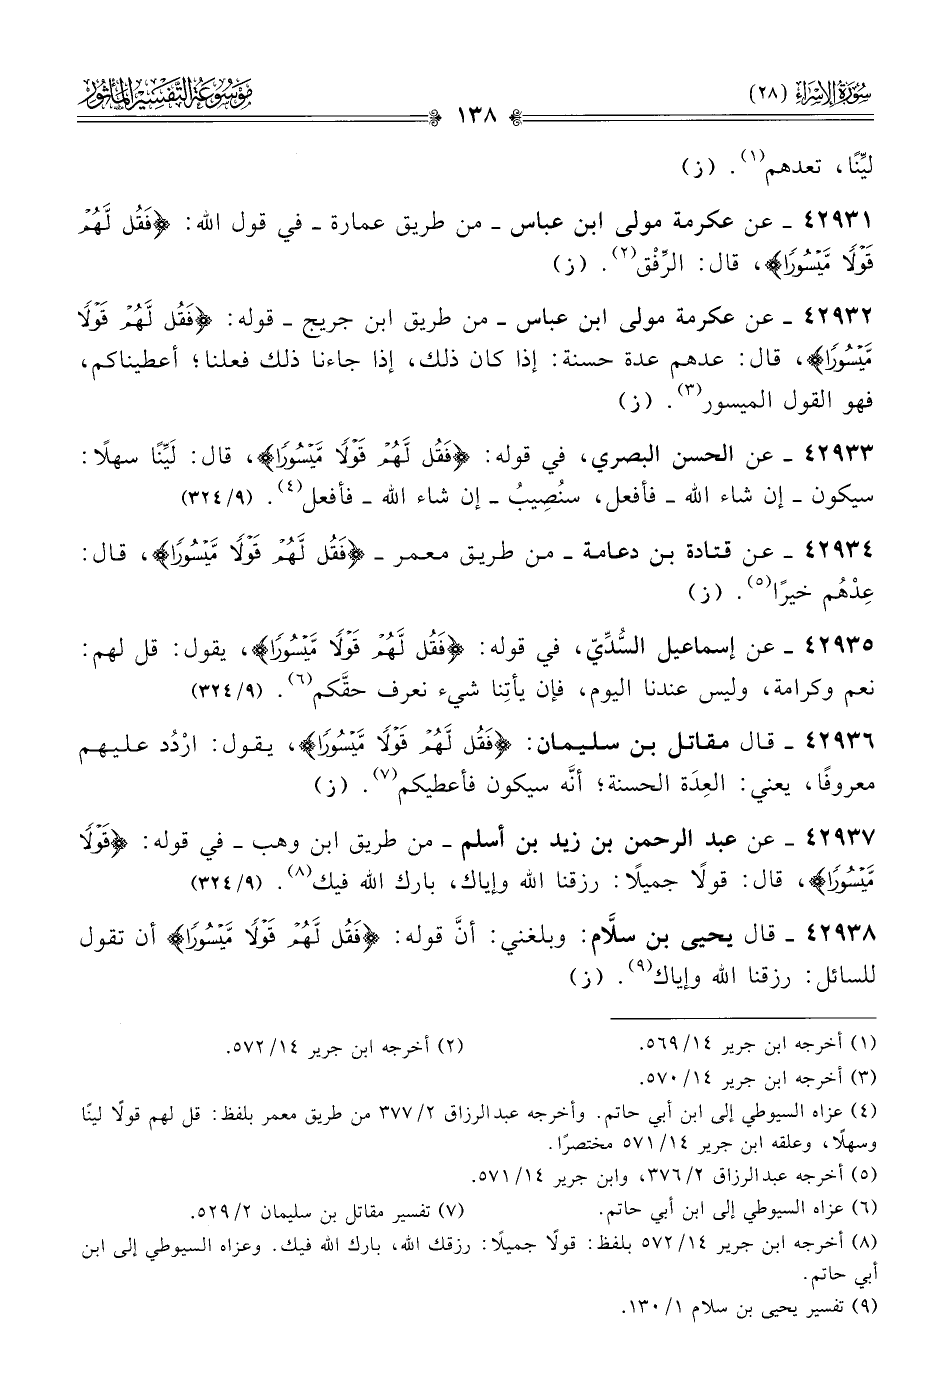 سُورَةُ الإِسْرَاءِ (٢٨)
١٣٨
مَوْسُوعَةُ التَّفْسِيرِ المَأْثُور
ليِّنًا، تعدهم(١). (ز)
٤٢٩٣١ ـ عن عكرمة مولى ابن عباس ـ من طريق عمارة ـ في قول الله: ﴿فَقُل لَّهُمْ
قَوْلًا مَّيْسُورًا﴾، قال: الرِّفْق(٢). (ز)
٤٢٩٣٢ ـ عن عكرمة مولى ابن عباس ـ من طريق ابن جريج ـ قوله: ﴿فَقُل لَّهُمْ قَوْلًا
مَّيْسُورًا﴾، قال: عدهم عدة حسنة: إذا كان ذلك، إذا جاءنا ذلك فعلنا؛ أعطيناكم،
فهو القول الميسور(٣). (ز)
٤٢٩٣٣ ـ عن الحسن البصري، في قوله: ﴿فَقُل لَّهُمْ قَوْلًا مَّيْسُورًا﴾، قال: لَيِّنًا سهلًا:
سيكون ـ إن شاء الله ـ فأفعل، سنُصِيبُ ـ إن شاء الله ـ فأفعل(٤). (٩/ ٣٢٤)
٤٢٩٣٤ ـ عن قتادة بن دعامة ـ من طريق معمر ـ ﴿فَقُل لَّهُمْ قَوْلًا مَّيْسُورًا﴾، قال:
عِدْهُم خيرًا(٥). (ز)
٤٢٩٣٥ ـ عن إسماعيل السُّدِّيِّ، في قوله: ﴿فَقُل لَّهُمْ قَوْلًا مَّيْسُورًا﴾، يقول: قل لهم:
نعم وكرامة، وليس عندنا اليوم، فإن يأتِنا شيء نعرف حقَّكم(٦). (٩/ ٣٢٤)
٤٢٩٣٦ ـ قال مقاتل بن سليمان: ﴿فَقُل لَّهُمْ قَوْلًا مَّيْسُورًا﴾، يقول: ارْدُد عليهم
معروفًا، يعني: العِدَة الحسنة؛ أنَّه سيكون فأعطيكم(٧). (ز)
٤٢٩٣٧ ـ عن عبد الرحمن بن زيد بن أسلم ـ من طريق ابن وهب ـ في قوله: ﴿قَوْلًا
مَّيْسُورًا﴾، قال: قولًا جميلًا: رزقنا الله وإياك، بارك الله فيك(٨). (٩/ ٣٢٤)
٤٢٩٣٨ ـ قال يحيى بن سلَّام: وبلغني: أنَّ قوله: ﴿فَقُل لَّهُمْ قَوْلًا مَّيْسُورًا﴾ أن تقول
للسائل: رزقنا الله وإياك(٩). (ز)
(١) أخرجه ابن جرير ١٤/ ٥٦٩.
(٢) أخرجه ابن جرير ١٤/ ٥٧٢.
(٣) أخرجه ابن جرير ١٤/ ٥٧٠.
(٤) عزاه السيوطي إلى ابن أبي حاتم. وأخرجه عبدالرزاق ٢/ ٣٧٧ من طريق معمر بلفظ: قل لهم قولًا لينًا
وسهلًا، وعلقه ابن جرير ١٤/ ٥٧١ مختصرًا.
(٥) أخرجه عبدالرزاق ٢/ ٣٧٦، وابن جرير ١٤/ ٥٧١.
(٦) عزاه السيوطي إلى ابن أبي حاتم.
(٧) تفسير مقاتل بن سليمان ٢/ ٥٢٩.
(٨) أخرجه ابن جرير ١٤/ ٥٧٢ بلفظ: قولًا جميلًا: رزقك الله، بارك الله فيك. وعزاه السيوطي إلى ابن
أبي حاتم.
(٩) تفسير يحيى بن سلام ١/ ١٣٠.